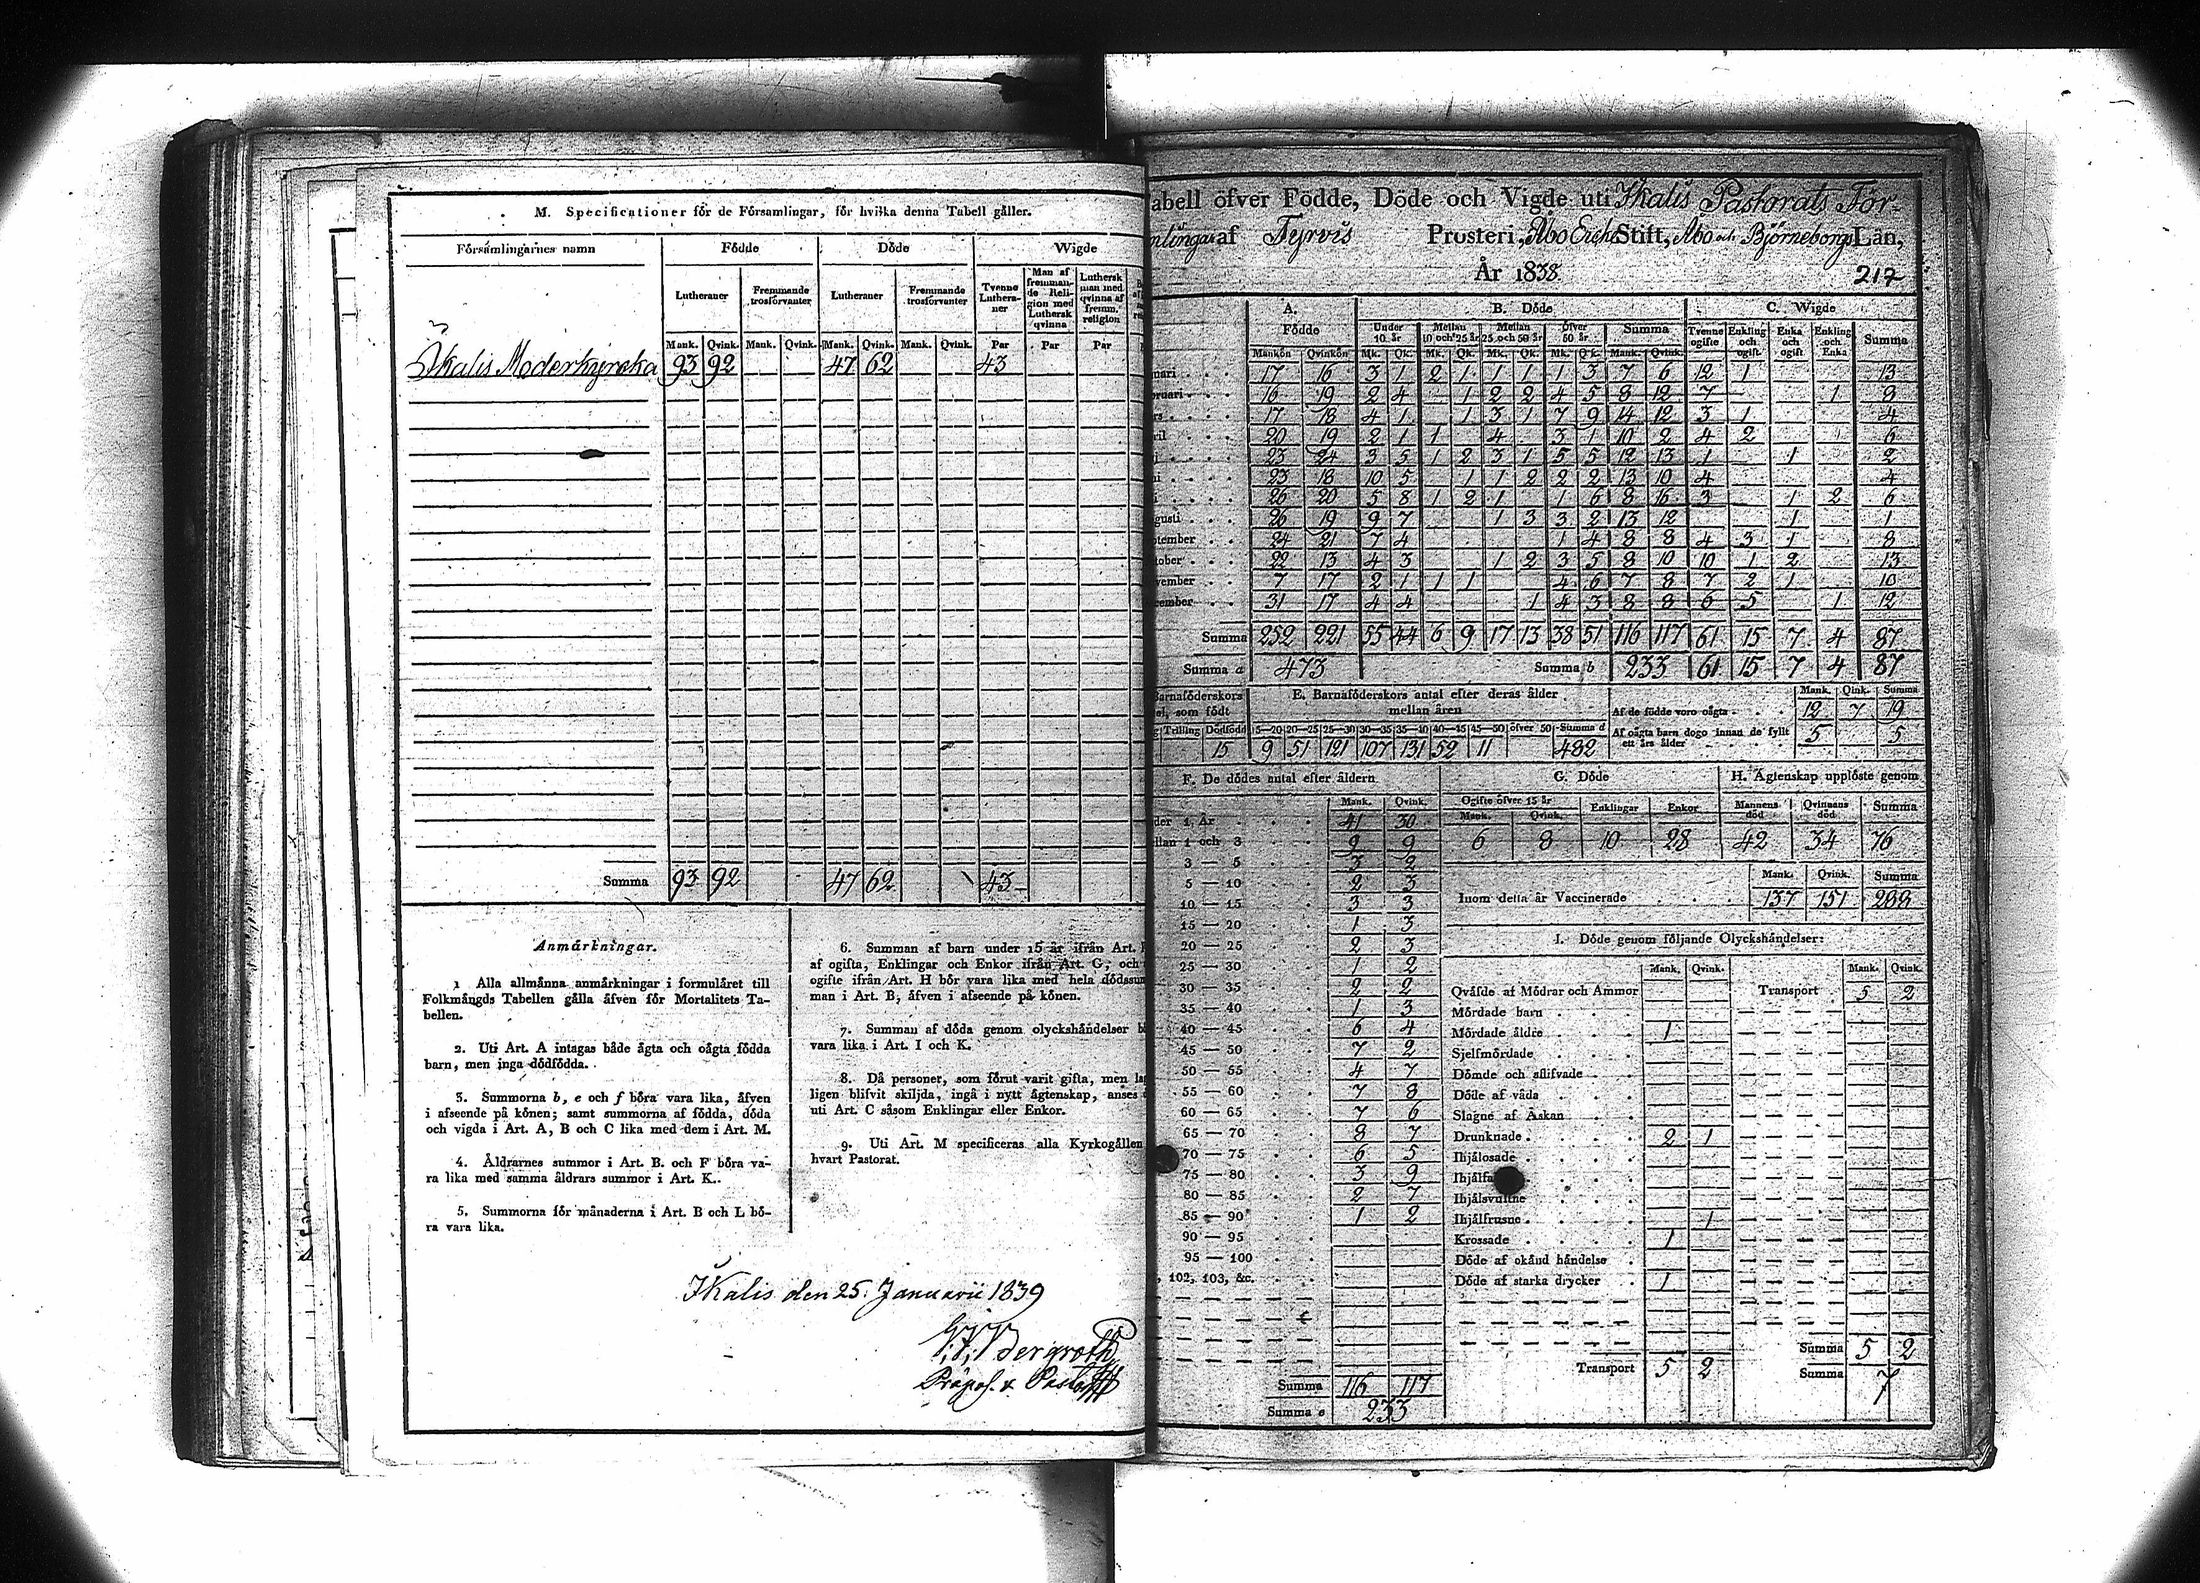 M. Specificationer för de Församlingar, för hvilka denna Tabell gäller.
Församlingarnes namn Födde Döde Wigde
Lutheraner Fremmande trosförvanter Lutheraner Fremmande trosförvanter Tvenne Lutheraner Man af fremmande Religion med Luthersk qvinna Luthersk man med qvinna af fremm. religion
Mank. Qvink. Mank. Qvink. Mank. Qvink. Mank. Qvink. Par Par Par
Ikalis Moderkyrcka 93 92 47 62 43
Summa 93 92 47 62 43
Anmärkningar.
1 Alla allmänna anmärkningar i formuläret till
Folkmängds Tabellen gälla äfven för Mortalitets Ta-
bellen.
2. Uti Art. A intagas både ägta och oägta födda
barn, men inga dödfödda.
3. Summorna b, e och f böra vara lika, äfven
i afseende på könen; samt summorna af födda, döda
och vigda i Art. A, B och C lika med dem i Art. M.
4. Åldrarnes summor i Art. B. och F böra va-
ra lika med samma åldrars summor i Art. K.
5. Summorna för månaderna i Art. B och L bö-
ra vara lika.
6. Summan af barn under 15 år ifrån Art.
af ogifta, Enklingar och Enkor ifrån Art. G, och
ogifte ifrån Art. H bör vara lika med hela dödssum
man i Art. B, äfven i afseende på könen.
7. Summan af döda genom olyckshändelser
vara lika i Art. I och K.
8. Då personer, som förut varit gifta, men
ligen blifvit skiljda, ingå i nytt ägtenskap, anses
uti Art. C såsom Enklingar eller Enkor.
9. Uti Art. M specificeras alla Kyrkogällen
hvart Pastorat.
Ikalis den 25. Januarii 1839
Bergroth
Präpos. & Pastor
abell öfver Födde, Döde och Vigde uti Ikalis Pastorats För-
mlingar af Tyrvis Prosteri, Åbo Erche Stift, Åbo och Björneborgs Län,
År 1838. 217
A. Födde B. Döde C. Wigde
Under 10 år Mellan 10 och 25 år Mellan 25 och 50 år Öfver 50 år Summa Tvenne ogifte Enkling och ogift. Enka och ogift Enkling och Enka Summa
Mankön Qvinkön Mk. Qk. Mk. Qk. Mk. Qk. Mk. Qk. Mank. Qvink.
uari 17 16 3 1 2 1 1 1 1 3 7 6 12 1 13
bruari 16 19 2 4 1 2 2 4 5 8 12 7 1 8
rs 17 18 4 1 1 3 1 7 9 14 12 3 1 4
ril 20 19 2 1 1 4 3 1 10 2 4 2 6
23 24 3 5 1 2 3 1 5 5 12 13 1 1 2
ni 23 18 10 5 1 1 2 2 2 13 10 4 4
26 20 5 8 1 2 1 1 6 8 16 3 1 2 6
gusti 26 19 9 7 1 3 3 2 13 12 1 1
ptember 24 21 7 4 1 4 8 8 4 3 1 8
tober 22 13 4 3 1 2 3 5 8 10 10 1 2 13
vember 7 17 2 1 1 1 4 6 7 8 7 2 1 10
cember 31 17 4 4 1 4 3 8 8 6 5 1 12
Summa 252 221 55 44 6 9 17 13 38 51 116 117 61 15 7 4 87
Summa a 473 Summa b 233 61 15 7 4 87
Barnaföderskors
el, som födt
Trilling Dödfödd
15
E. Barnaföderskors antal efter deras ålder
mellan åren
15—20 20—25 25—30 30—35 35—40 40—45 45—50 öfver 50 Summa d
9 51 121 107 131 52 11 482
Mank. Qink. Summa
Af de födde voro oägta 12 7 19
Af oägta barn dogo innan de fyllt
ett års ålder 5 5
F. De dödes antal efter åldern
Mank. Qvink.
der 1 År 41 30
llan 1 och 3 9 9
3 — 5 3 2
5 — 10 2 3
10 — 15 3 3
15 — 20 1 3
20 — 25 2 3
25 — 30 1 2
30 — 35 2 2
35 — 40 1 3
40 — 45 6 4
45 — 50 7 2
50 — 55 4 7
55 — 60 7 8
60 — 65 7 6
65 — 70 8 7
70 — 75 6 5
75 — 80 3 9
80 — 85 2 7
85 — 90 1 2
90 — 95
95 — 100
102, 103, &c.
Summa 116 117
Summa e 233
G. Döde
Ogifte öfver 15 år Enklingar Enkor
Mank. Qvink.
6 8 10 28
H. Ägtenskap upplöste genom
Mannens död Qvinnans död Summa
42 34 76
Mank. Qvink. Summa
Inom detta år Vaccinerade 137 151 288
I. Döde genom följande Olyckshändelser:
Mank. Qvink. Mank. Qvink.
Qväfde af Mödrar och Ammor Transport 5 2
Mördade barn
Mördade äldre 1
Sjelfmördade
Dömde och aflifvade
Döde af våda
Slagne af Åskan
Drunknade 2 1
Ihjälosade
Ihjälfa
Ihjälsvultne
Ihjälfrusne 1
Krossade 1
Döde af okänd händelse
Döde af starka drycker 1
Summa 5 2
Transport 5 2 Summa 7